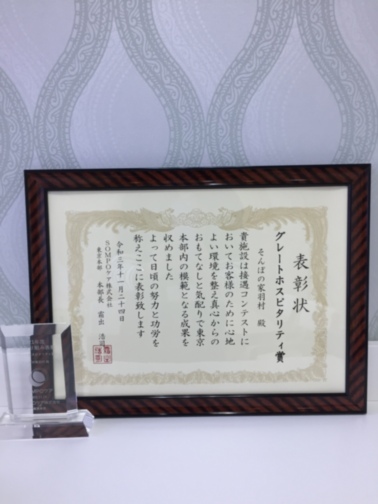 表彰状
グレートホスピタリティ賞
そんぽの家羽村 殿
貴施設は接遇コンテストに
おいてお客様のために心地
よい環境を整え真心からの
おもてなしと気配りで東京
本部内の模範となる成果を
収めました
よって日頃の努力と功労を
称えここに表彰致します
令和三年十一月二十四日
SOMPOケア株式会社
東京本部 本部長 富出